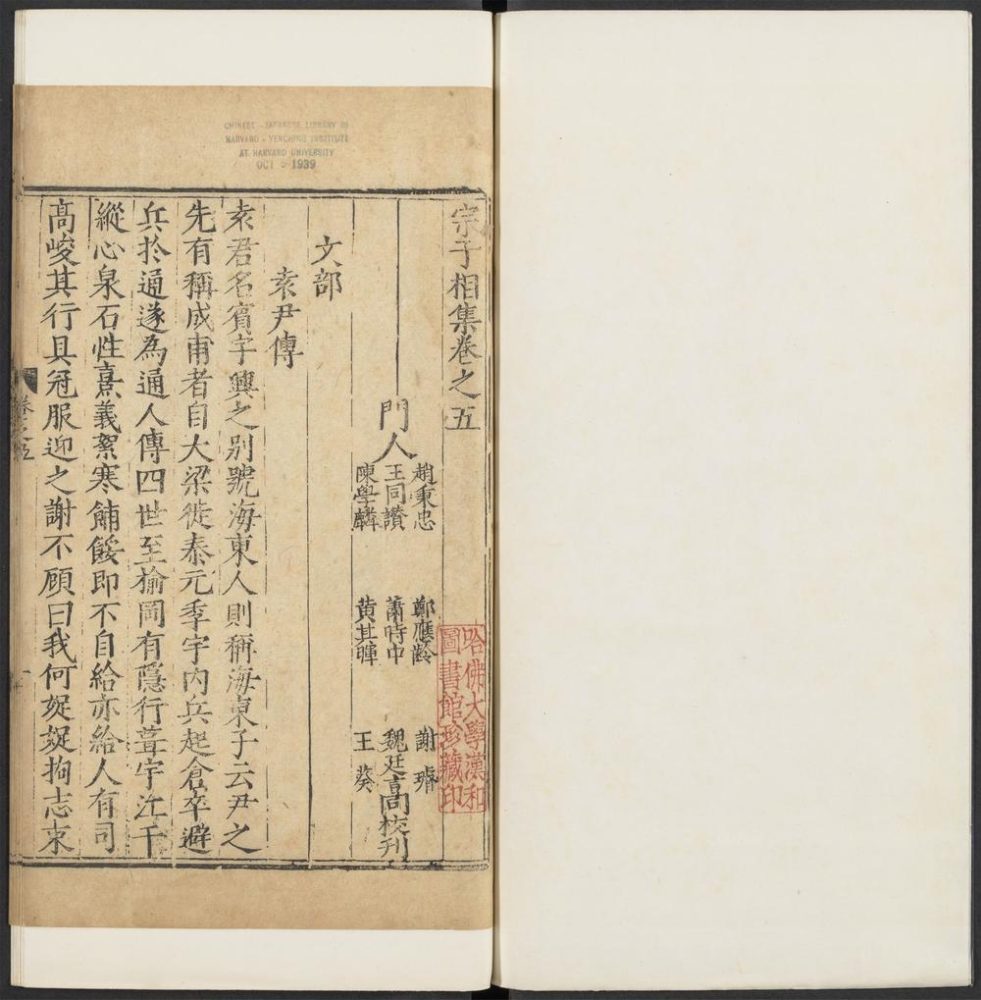 CHINESE - JAPANESE LIBRARY OF
HARVARD - YENCHING INSTITUTE
AT HARVARD UNIVERSITY
OCT 1939
宗子相集卷之五
哈佛大學漢和
圖書館珍藏印
門人
趙秉忠 鄭應齡 謝
王同讚 蕭時中 魏廷高校刊
陳學麟 黄其暉 王葵
文部
袁尹傳
袁君名賓字興之别號海東人則稱海東子云尹之
先有稱成甫者自大梁徙泰元季宇内兵起倉卒避
兵於通遂為通人傳四世至榆岡有隱行葺宇江干
縱心泉石性熹義絮寒餔餒即不自給亦給人有司
高峻其行具冠服迎之謝不顧曰我何娖娖拘志束
卷之五 一